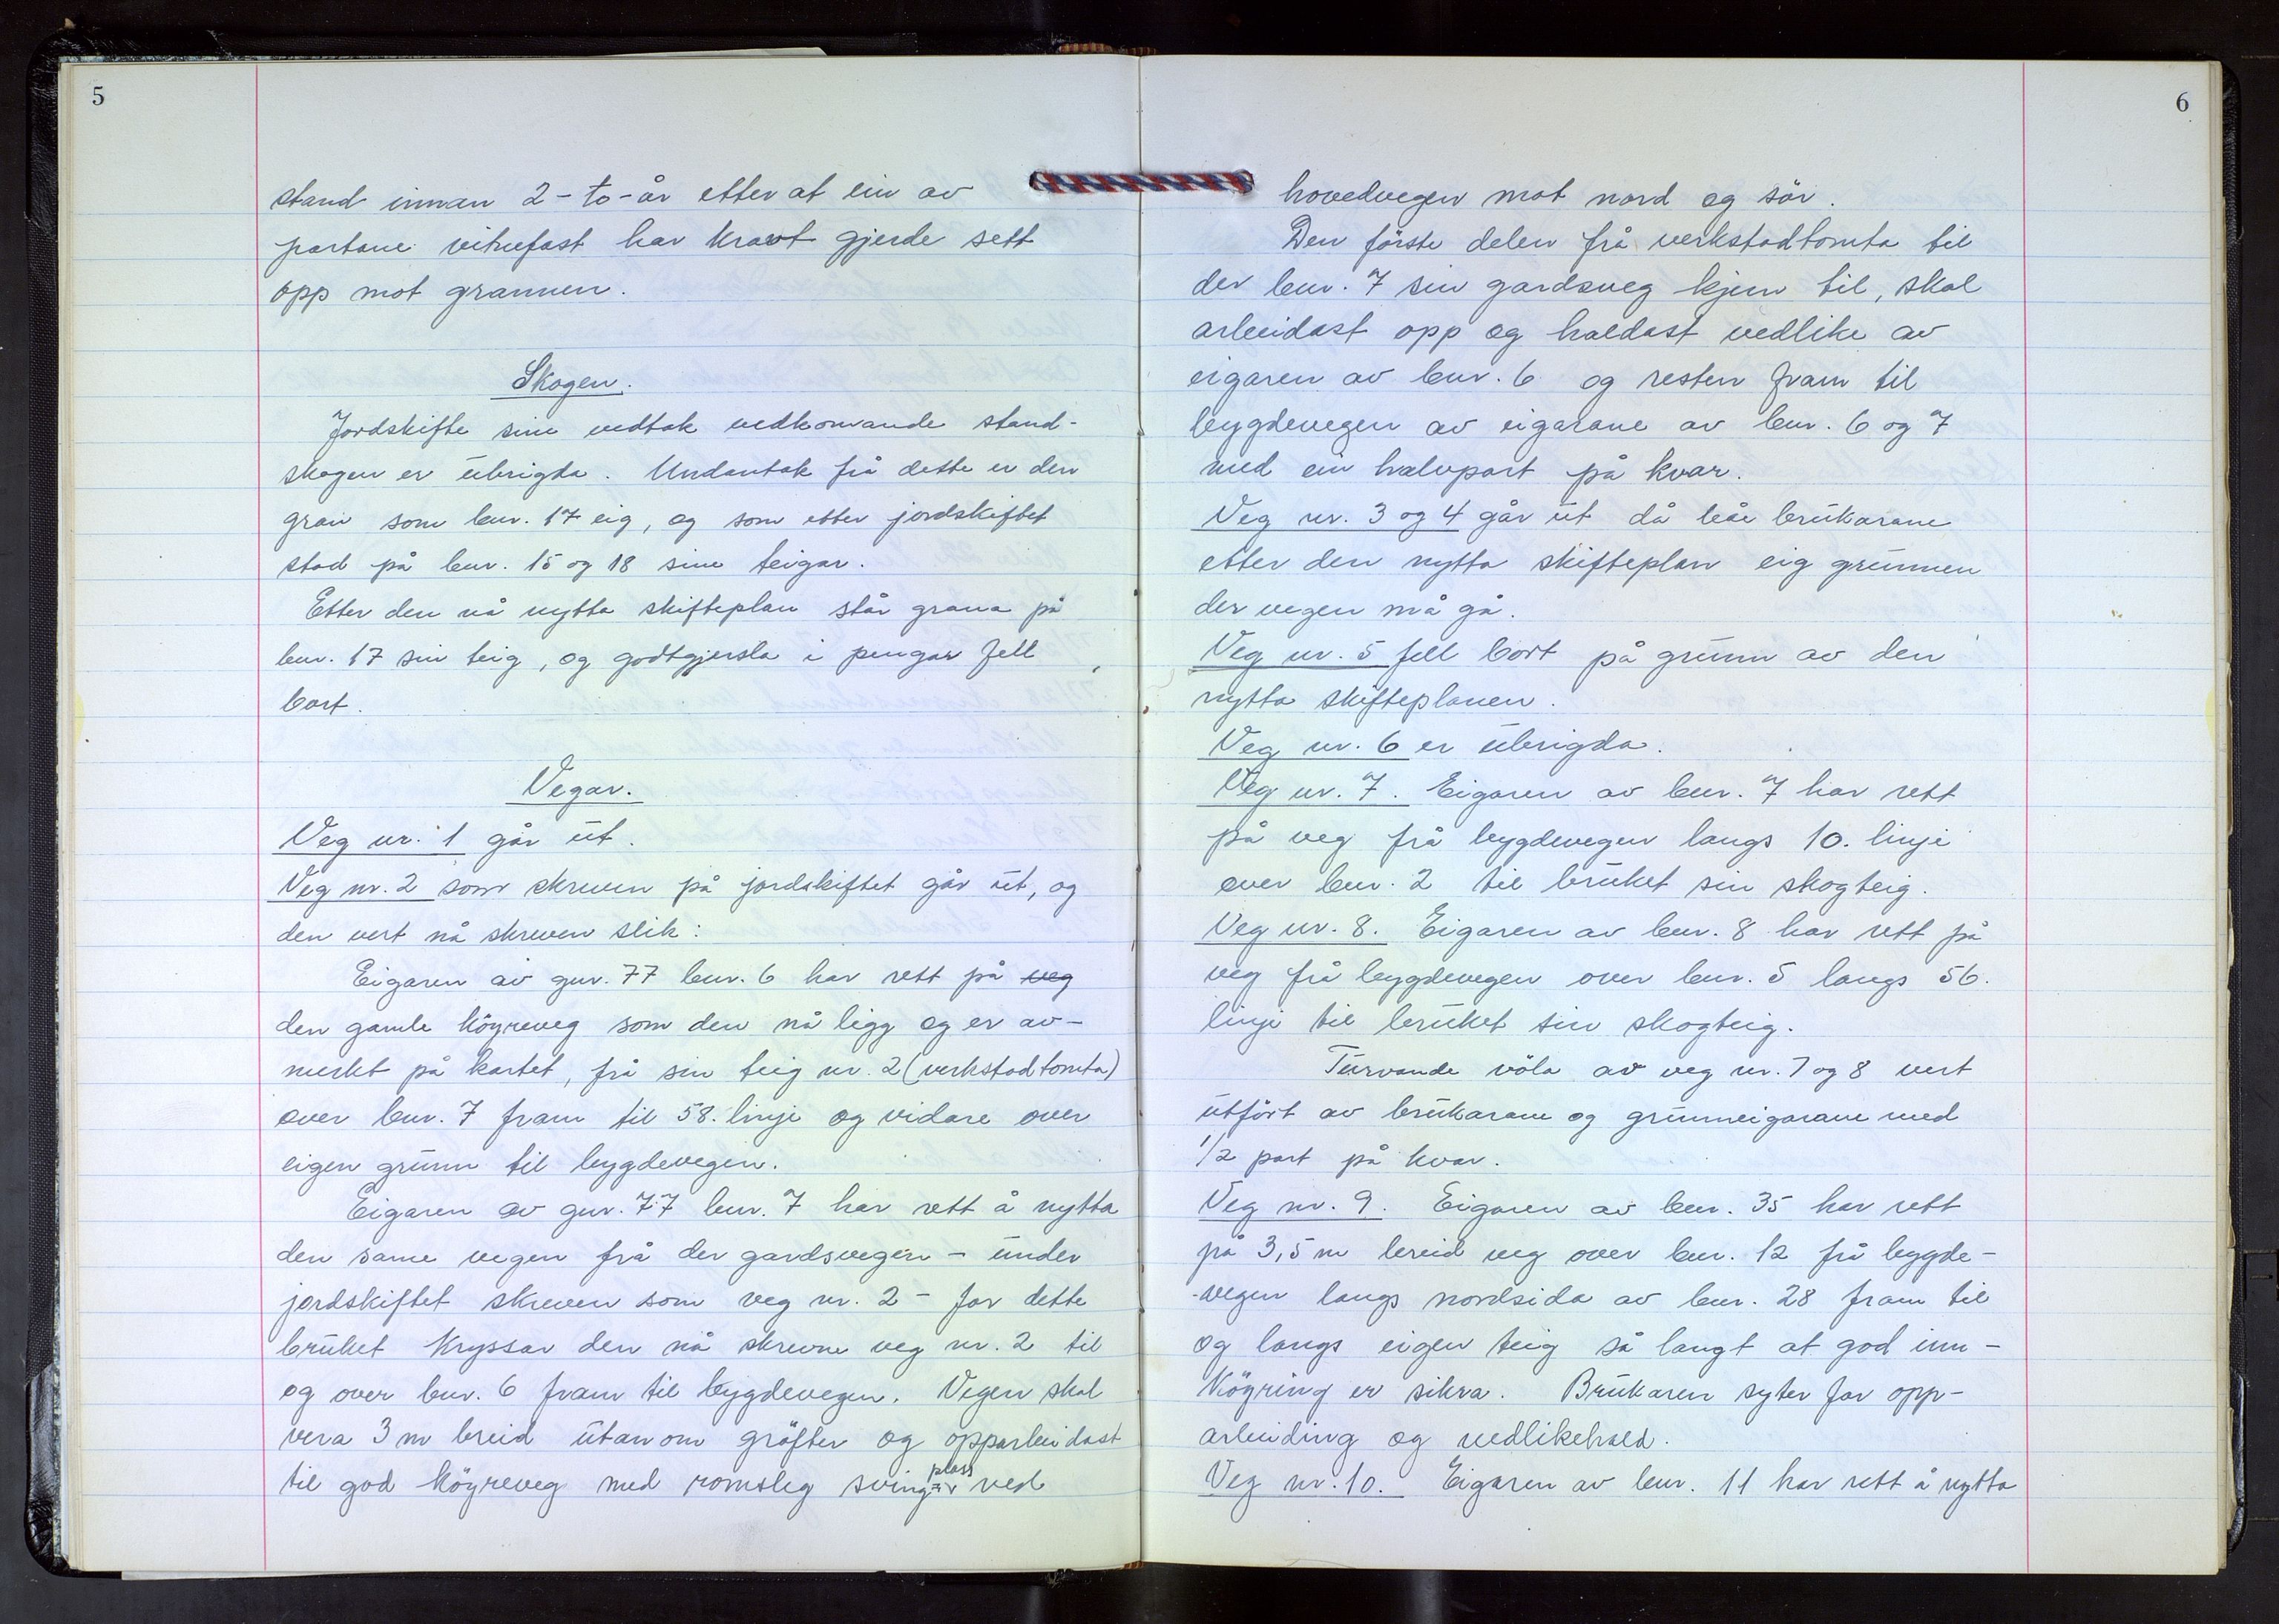 5
stand innan 2-to-år etter at ein av
partane vitnefast har kravt gjerde sett
opp mot grannen.
Skogen.
Jordskifte sine vedtak vedkomande stand-
skogen er ubrigda. Undantak frå dette er den
gran som bnr. 17 eig, og som etter jordskiftet
stod på bnr. 15 og 18 sine teigar.
Etter den nå nytta skifteplan står grana på
bnr. 17 sin teig, og godtgjersla i pengar fell
bort.
Vegar.
Veg nr. 1 går ut.
Veg nr. 2 som skreven på jordskiftet går ut, og
den vert nå skreven slik:
Eigaren av gnr. 77 bnr. 6 har rett på veg
den gamle köyreveg som den nå ligg og er av-
merkt på kartet, frå sin teig nr. 2 (verkstadtomta)
over bnr. 7 fram til 58. linje og vidare over
eigen grunn til bygdevegen.
Eigaren av gnr. 77 bnr. 7 har rett å nytta
den same vegen frå der gardsvegen - under
jordskiftet skreven som veg nr. 2 - for dette
bruket kryssar den nå skrevne veg nr. 2 til
og over bnr. 6 fram til bygdevegen. Vegen skal
vera 3 m breid utanom gröfter og opparbeidast
til god köyreveg med romsleg svingplass ved
6
hovedvegen mot nord og sör.
Den förste delen frå verkstadtomta til
der bnr. 7 sin gardsveg kjem til, skal
arbeidast opp og haldast vedlike av
eigaren av bnr. 6 og resten fram til
bygdevegen av eigarane av bnr. 6 og 7
med ein halvpart på kvar.
Veg nr. 3 og 4 går ut då båe brukarane
etter den nytta skifteplan eig grunnen
der vegen må gå.
Veg nr. 5 fell bort på grunn av den
nytta skifteplanen.
Veg nr. 6 er ubrigda.
Veg nr. 7. Eigaren av bnr. 7 har rett
på veg frå bygdevegen langs 10. linje
over bnr. 2 til bruket sin skogteig.
Veg nr. 8. Eigaren av bnr. 8 har rett på
veg frå bygdevegen over bnr. 5 langs 56.
linje til bruket sin skogteig.
Turvande völa av veg nr. 7 og 8 vert
utfört av brukarane og grunneigarane med
1/2 part på kvar.
Veg nr. 9. Eigaren av bnr. 35 har rett
på 3,5 m breid veg over bnr. 12 frå bygde-
-vegen langs nordsida av bnr. 28 fram til
og langs eigen teig så langt at god inn-
köyring er sikra. Brukaren syter for opp-
arbeiding og vedlikehald.
Veg nr. 10. Eigaren av bnr. 11 har rett å nytta